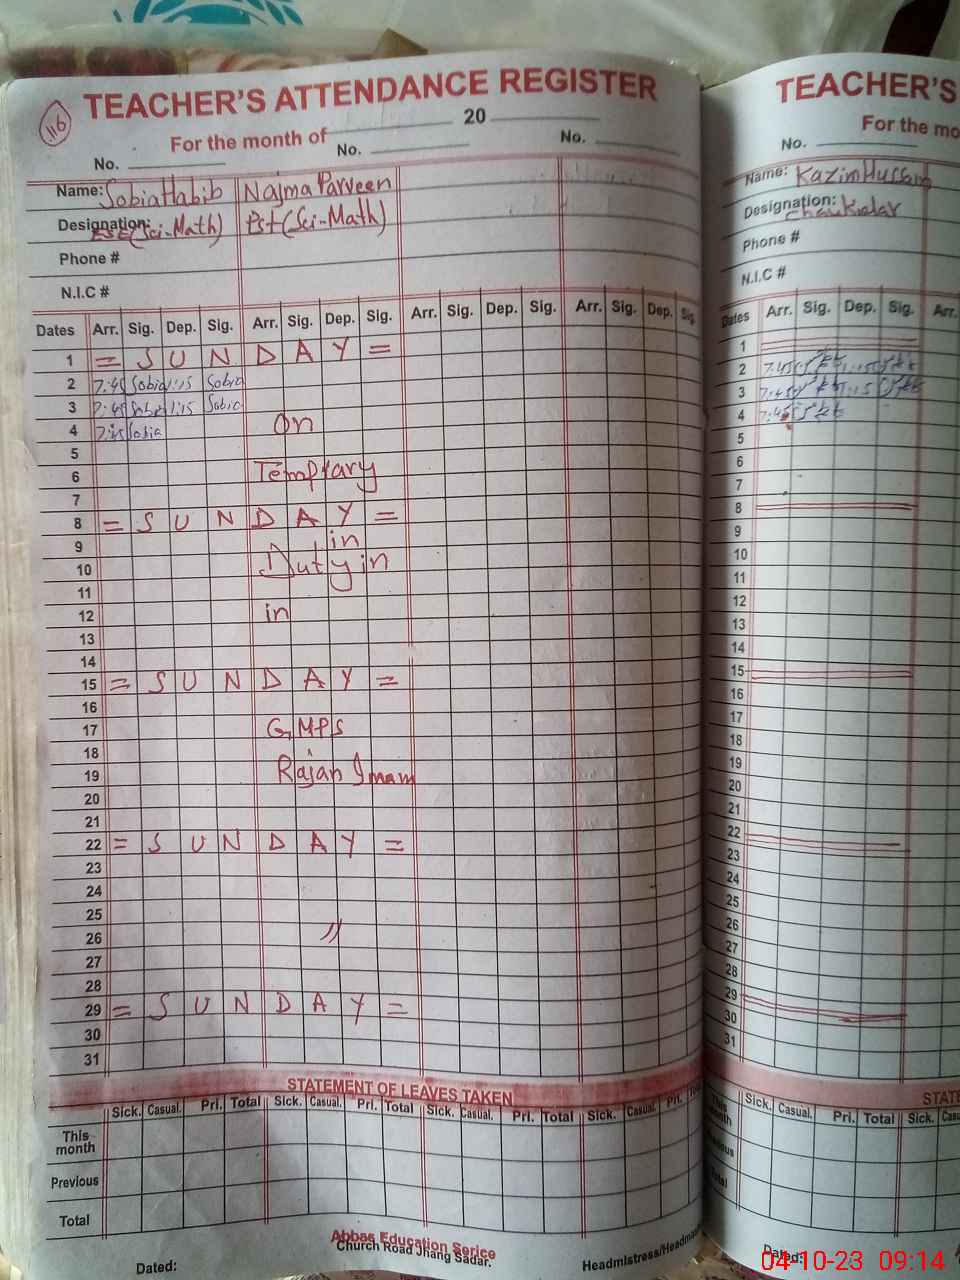 116
TEACHER'S ATTENDANCE REGISTER
For the month of 20
No. No. No.
Name: Sobia Habib Najma Parveen
Designation: Est (Sci-Math) Est (Sci-Math)
Phone #
N.I.C #
Dates Arr. Sig. Dep. Sig. Arr. Sig. Dep. Sig. Arr. Sig. Dep. Sig. Arr. Sig. Dep. Sig.
1 = S U N D A Y =
2 7:45 Sobia 1:15 Sobia
3 7:45 Sobia 1:15 Sobia
4 7:45 Sobia On
5
6 Temprary
7
8 = S U N D A Y =
9 in
10 Duty in
11
12 in
13
14
15 = S U N D A Y =
16
17 GMPS
18
19 Rajan Imam
20
21
22 = S U N D A Y =
23
24
25
26 "
27
28
29 = S U N D A Y =
30
31
STATEMENT OF LEAVES TAKEN
Sick. Casual. Pri. Total Sick. Casual. Pri. Total Sick. Casual. Pri. Total Sick. Casual. Pri.
This month
Previous
Total
Abbas Education Serice
Church Road Jhang Sadar.
Dated: Headmistress/Headma
TEACHER'S
For the mo
No.
Name: Kazim Hussain
Designation: Chaukidar
Phone #
N.I.C #
Dates Arr. Sig. Dep. Sig. Arr.
1
2 7:45 1:15
3 7:45 1:15
4 7:45
5
6
7
8
9
10
11
12
13
14
15
16
17
18
19
20
21
22
23
24
25
26
27
28
29
30
31
STATE
Sick. Casual. Pri. Total Sick. Cas
Dated:
04-10-23 09:14